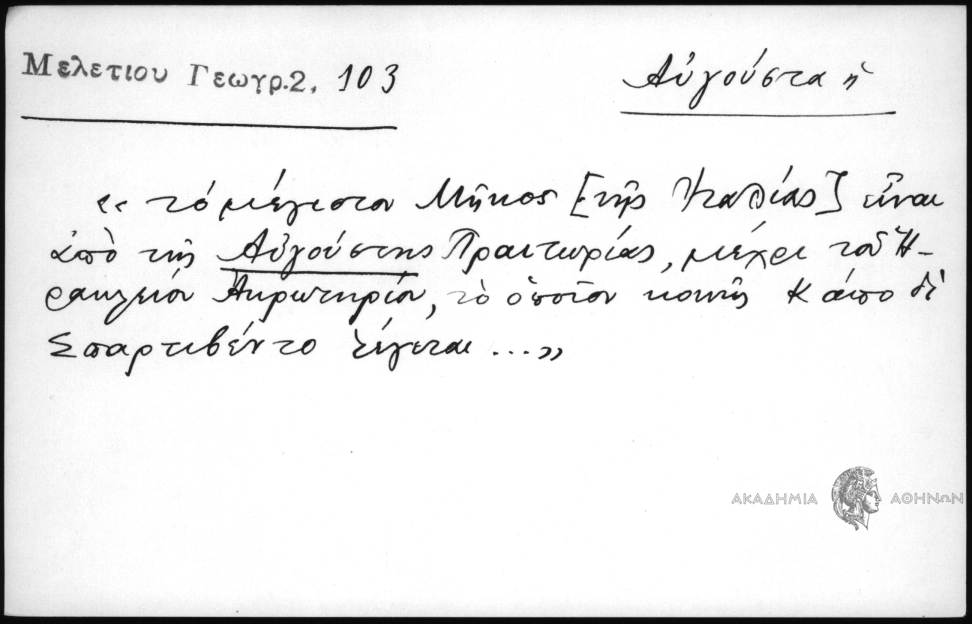 Μελετίου Γεωγρ.2, 103
Αὐγούστα ἡ
«τό μέγιστον Μῆκος [τῆς Ἰταλίας] εἶναι
ἀπὸ τῆς Αὐγούστης Πραιτωρίας, μέχρι τοῦ Ἡ-
ρακλείου Ἀκρωτηρίου, τὸ ὁποῖον κοινῶς Κάπο δὶ
Σπαρτιβέντο λέγεται ...»
ΑΚΑΔΗΜΙΑ ΑΘΗΝΩΝ